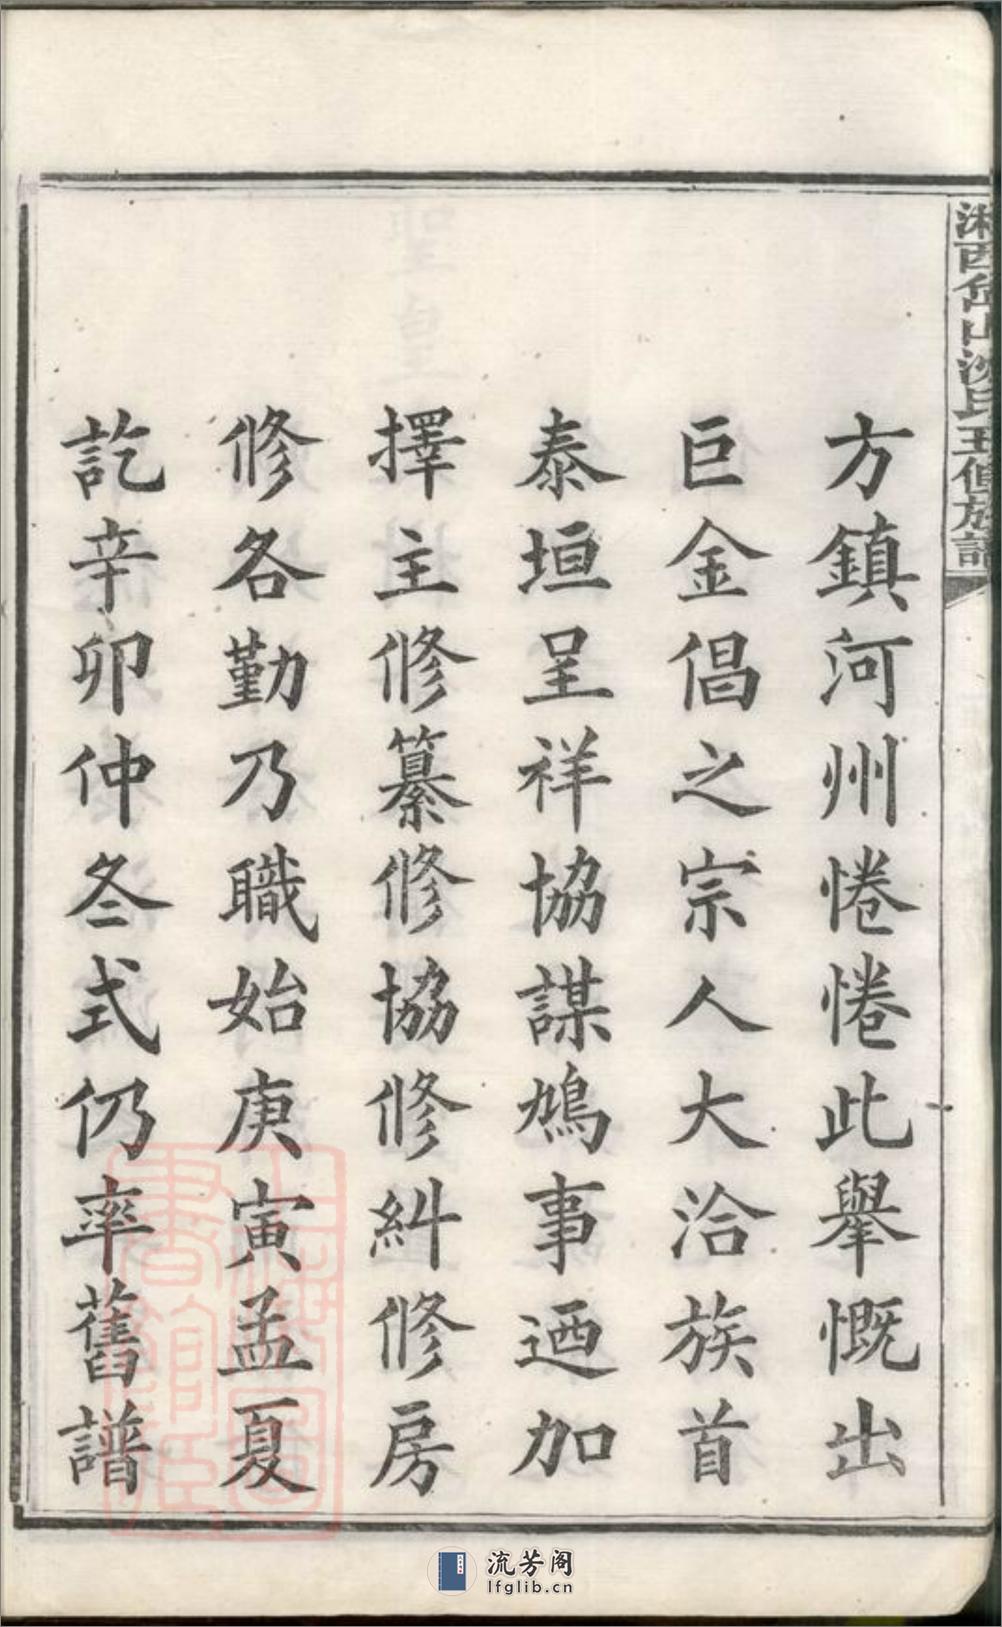 湘西岳山沈氏五修族譜
方鎮河州惓惓此舉慨出
巨金倡之宗人大洽族首
泰垣呈祥協謀鳩事迺加
擇主修纂修協修糾修房
修各勤乃職始庚寅孟夏
訖辛卯仲冬式仍率舊譜
上海圖書館藏
流芳阁
lfglib.cn